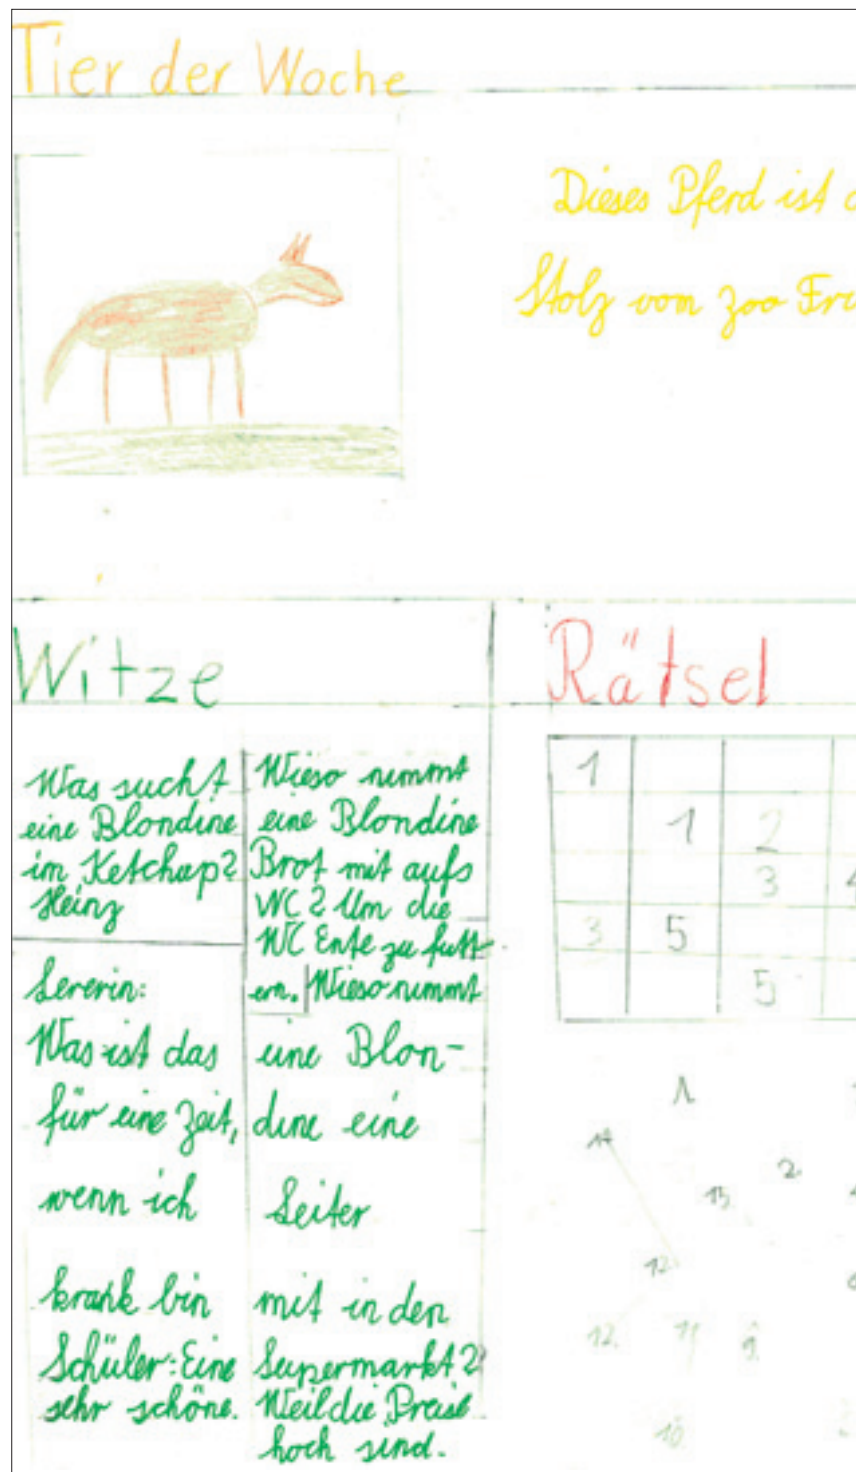 Tier der Woche
Dieses Pferd ist d
Stolz vom Zoo Fra
Witze
Was sucht
eine Blondine
im Ketchup?
Heinz
Lererin:
Was ist das
für eine Zeit,
wenn ich
krank bin
Schüler: Eine
sehr schöne.
Wieso nimmt
eine Blondine
Brot mit aufs
WC? Um die
WC Ente zu futt-
ern. Wieso nimmt
eine Blon-
dine eine
Leiter
mit in den
Supermarkt?
Weil die Preise
hoch sind.
Rätsel
1
1 2
3 4
3 5
5
1
14
2
13
12
12 11 9
10